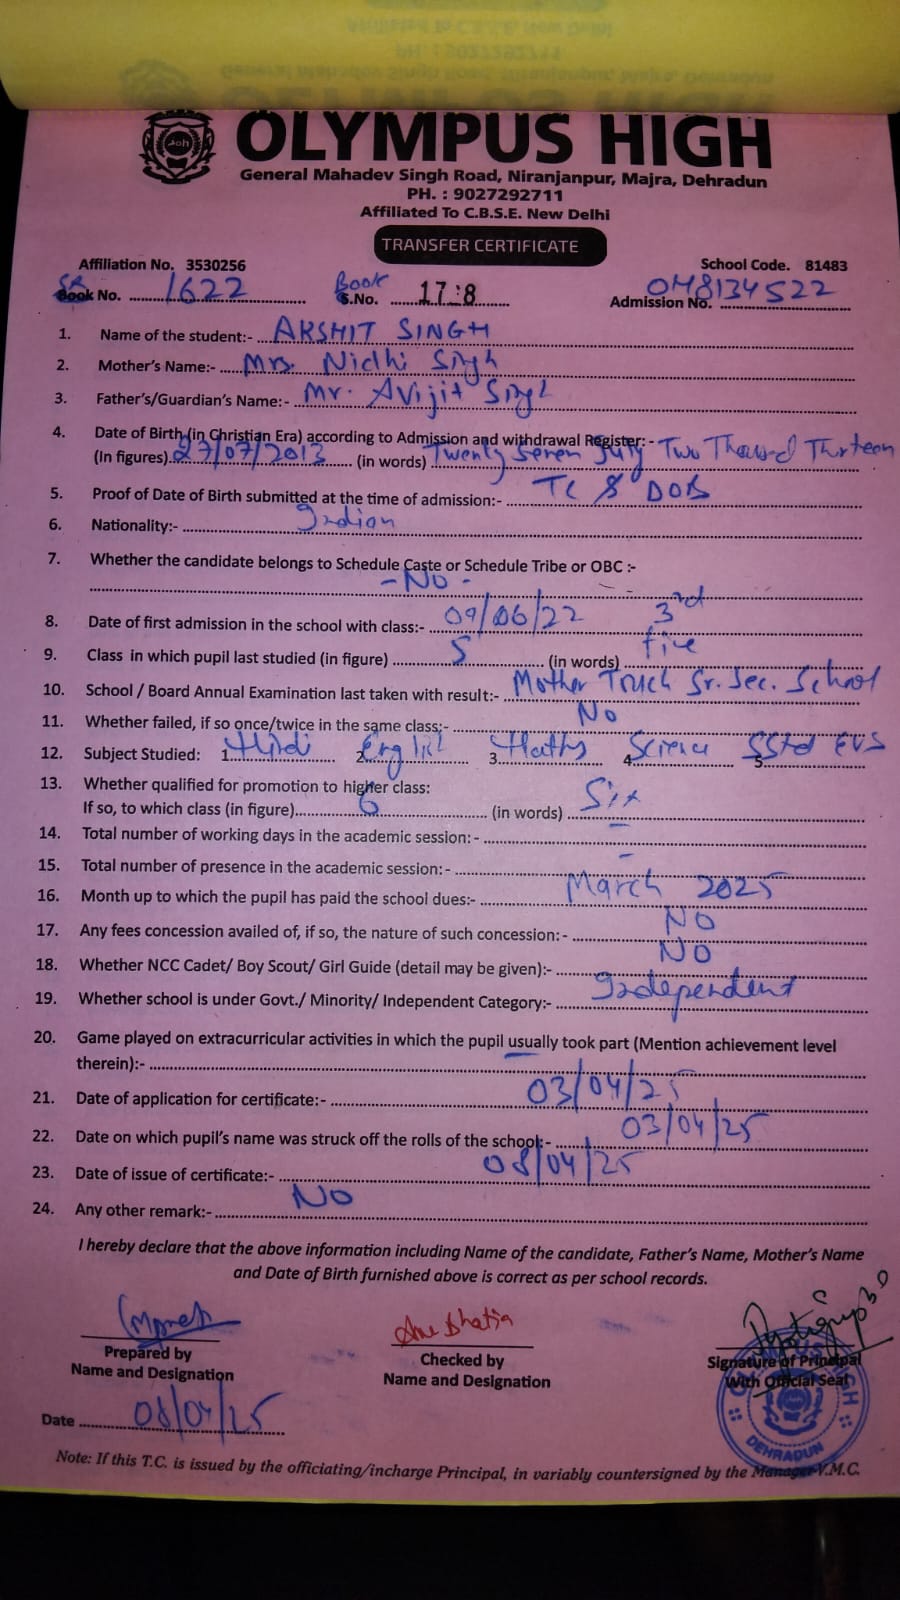 OLYMPUS HIGH
General Mahadev Singh Road, Niranjanpur, Majra, Dehradun
PH. : 9027292711
Affiliated To C.B.S.E. New Delhi
TRANSFER CERTIFICATE
Affiliation No. 3530256 School Code. 81483
SR Book No. 1622 Book S.No. 17 8 Admission No. OH8134522
1. Name of the student:- AKSHIT SINGH
2. Mother's Name:- Mrs. Nidhi Singh
3. Father's/Guardian's Name:- Mr. Avijit Singh
4. Date of Birth (in Christian Era) according to Admission and withdrawal Register:-
(In figures) 27/07/2013 (in words) Twenty Seven July Two Thousand Thirteen
5. Proof of Date of Birth submitted at the time of admission:- TC & DOB
6. Nationality:- Indian
7. Whether the candidate belongs to Schedule Caste or Schedule Tribe or OBC :-
- No -
8. Date of first admission in the school with class:- 09/06/22 3rd
9. Class in which pupil last studied (in figure) 5 (in words) five
10. School / Board Annual Examination last taken with result:- Mother Touch Sr. Sec. School
11. Whether failed, if so once/twice in the same class:- No
12. Subject Studied: 1. Hindi 2. English 3. Maths 4. Science 5. SStd EVS
13. Whether qualified for promotion to higher class:
If so, to which class (in figure) 6 (in words) Six
14. Total number of working days in the academic session: - –
15. Total number of presence in the academic session: - –
16. Month up to which the pupil has paid the school dues:- March 2025
17. Any fees concession availed of, if so, the nature of such concession: - NO
18. Whether NCC Cadet/ Boy Scout/ Girl Guide (detail may be given):- NO
19. Whether school is under Govt./ Minority/ Independent Category:- Independent
20. Game played on extracurricular activities in which the pupil usually took part (Mention achievement level
therein):-
21. Date of application for certificate:- 03/04/25
22. Date on which pupil's name was struck off the rolls of the school:- 03/04/25
23. Date of issue of certificate:- 08/04/25
24. Any other remark:- NO
I hereby declare that the above information including Name of the candidate, Father's Name, Mother's Name
and Date of Birth furnished above is correct as per school records.
Prepared by
Name and Designation
Bhatia
Checked by
Name and Designation
Signature of Principal
With Official Seal
DEHRADUN
Date 08/04/25
Note: If this T.C. is issued by the officiating/incharge Principal, in variably countersigned by the Manager V.M.C.